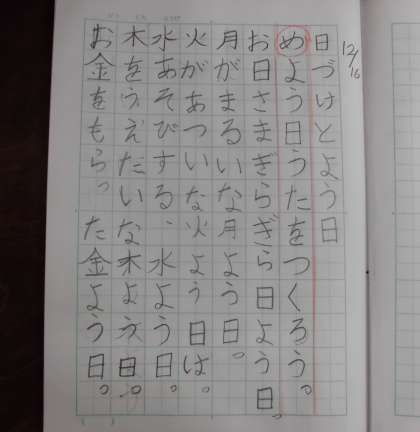 12/16
日づけとよう日
めよう日うたをつくろう。
お日さまぎらぎら日よう日。
月がまるいな月よう日。
火があついな火よう日は。
水あそびする、水よう日。
木をうえだいな木よう日。
お金をもらった金よう日。